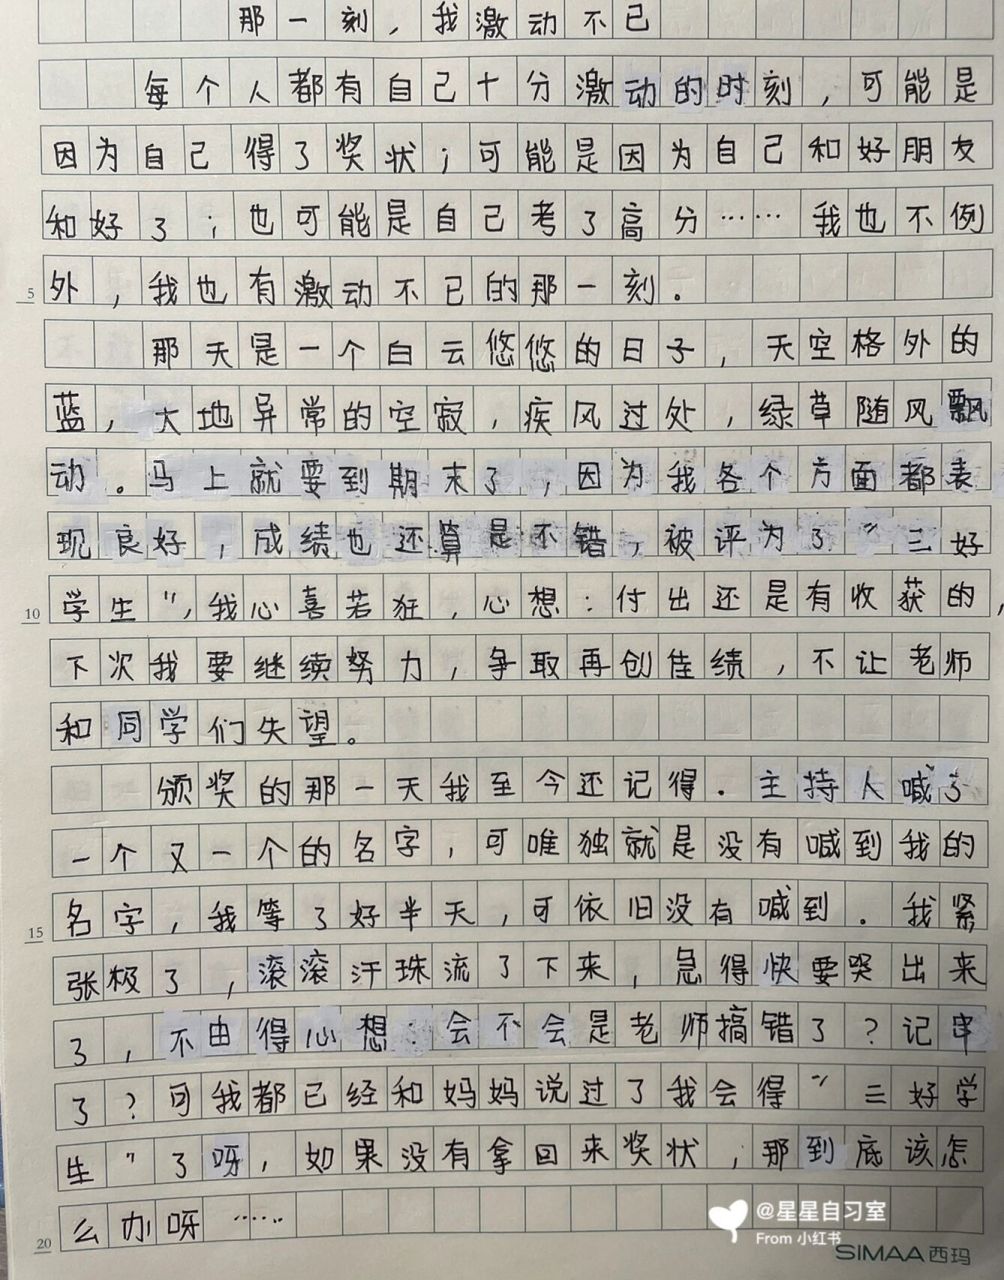 那一刻，我激动不已
每个人都有自己十分激动的时刻，可能是
因为自己得了奖状；可能是因为自己和好朋友
和好了；也可能是自己考了高分……我也不例
5 外，我也有激动不已的那一刻。
那天是一个白云悠悠的日子，天空格外的
蓝，大地异常的空寂，疾风过处，绿草随风飘
动。马上就要到期末了，因为我各个方面都表
现良好，成绩也还算是不错，被评为了“三好
10 学生”，我心喜若狂，心想：付出还是有收获的，
下次我要继续努力，争取再创佳绩，不让老师
和同学们失望。
颁奖的那一天我至今还记得．主持人喊了
一个又一个的名字，可唯独就是没有喊到我的
15 名字，我等了好半天，可依旧没有喊到．我紧
张极了，滚滚汗珠流了下来，急得快要哭出来
了，不由得心想：会不会是老师搞错了？记串
了？可我都已经和妈妈说过了我会得“三好学
生”了呀，如果没有拿回来奖状，那到底该怎
20 么办呀……
@星星自习室
From 小红书
SIMAA西玛